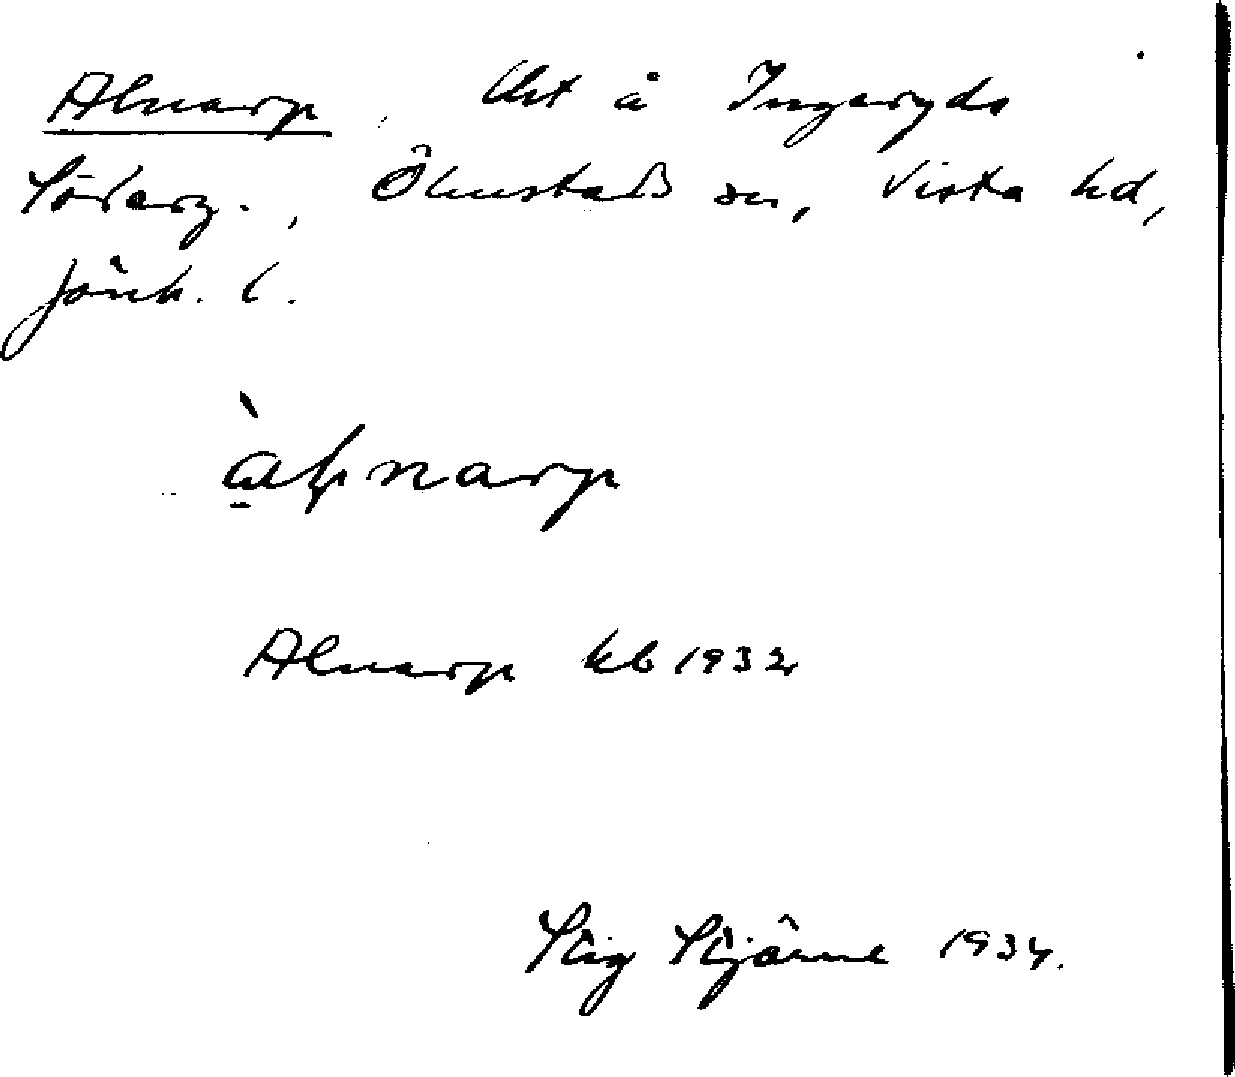 Alnarp. Lht å Ingaryds
Söderg., Ölmstads sn, Vista hd,
Jönk. l.
Alnarp kb 1932
Stig Stjärne 1934.